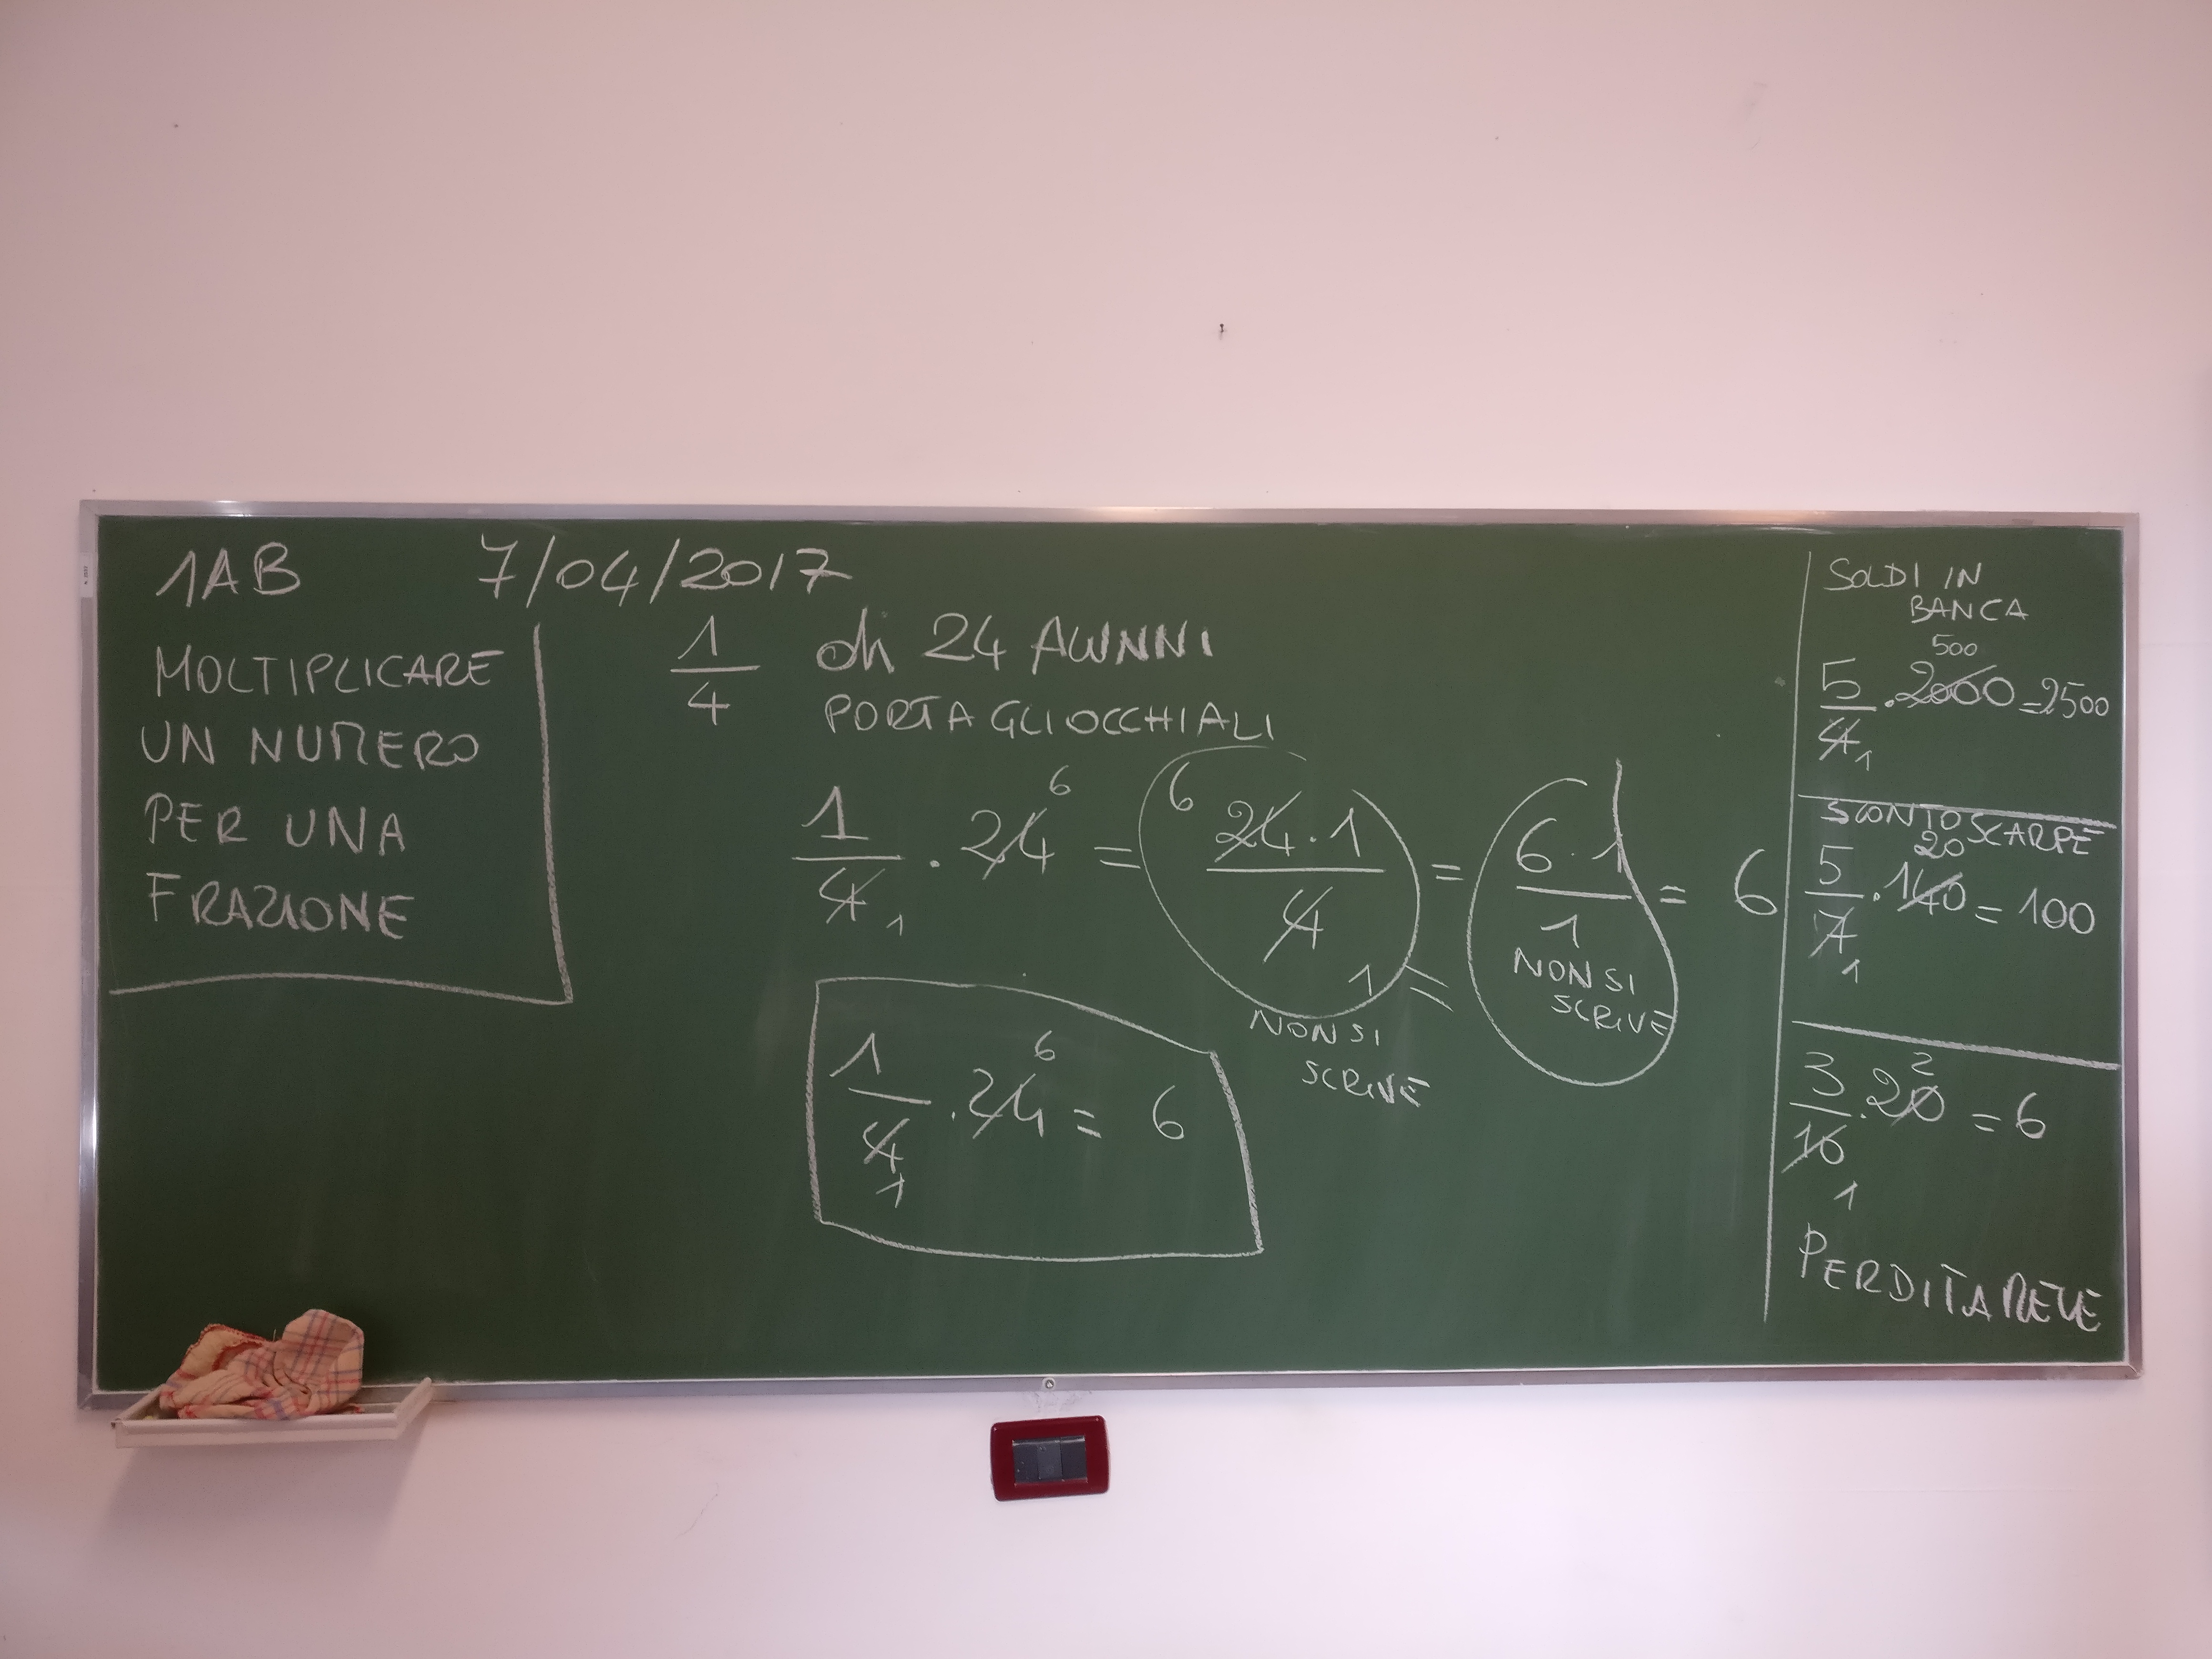 1AB 7/04/2017
MOLTIPLICARE
UN NUMERO
PER UNA
FRAZIONE
1/4 di 24 ALUNNI
PORTA GLI OCCHIALI
1/4 1 · 24 6 = 6 24 · 1 / 4 1 = 6 · 1 / 1 = 6
NON SI
SCRIVE
=
NON SI
SCRIVE
1/4 1 · 24 6 = 6
SOLDI IN
BANCA
500
5/4 1 · 2000 = 2500
SCONTO SCARPE
20
5/7 1 · 140 = 100
2
3/10 1 · 20 = 6
PERDITA RETE